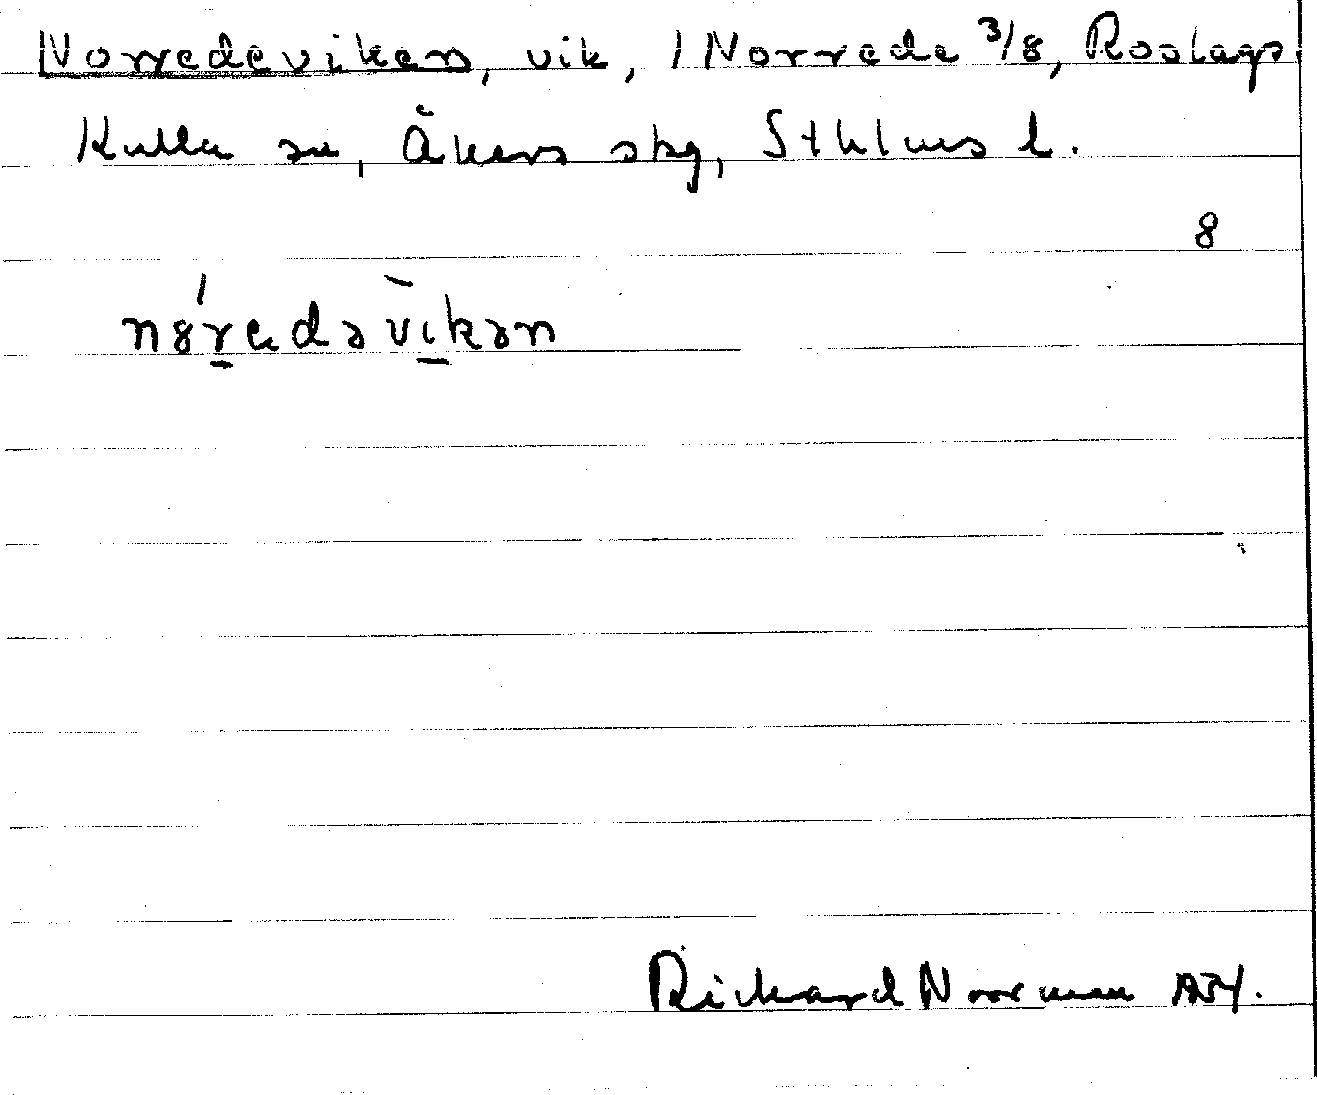 Norredeviken, vik, / Norrede 3/8, Roslags.
Kulla sn, Åkers skg, Sthlms l.
8
nɔ́redəvìkən
Richard Norrman